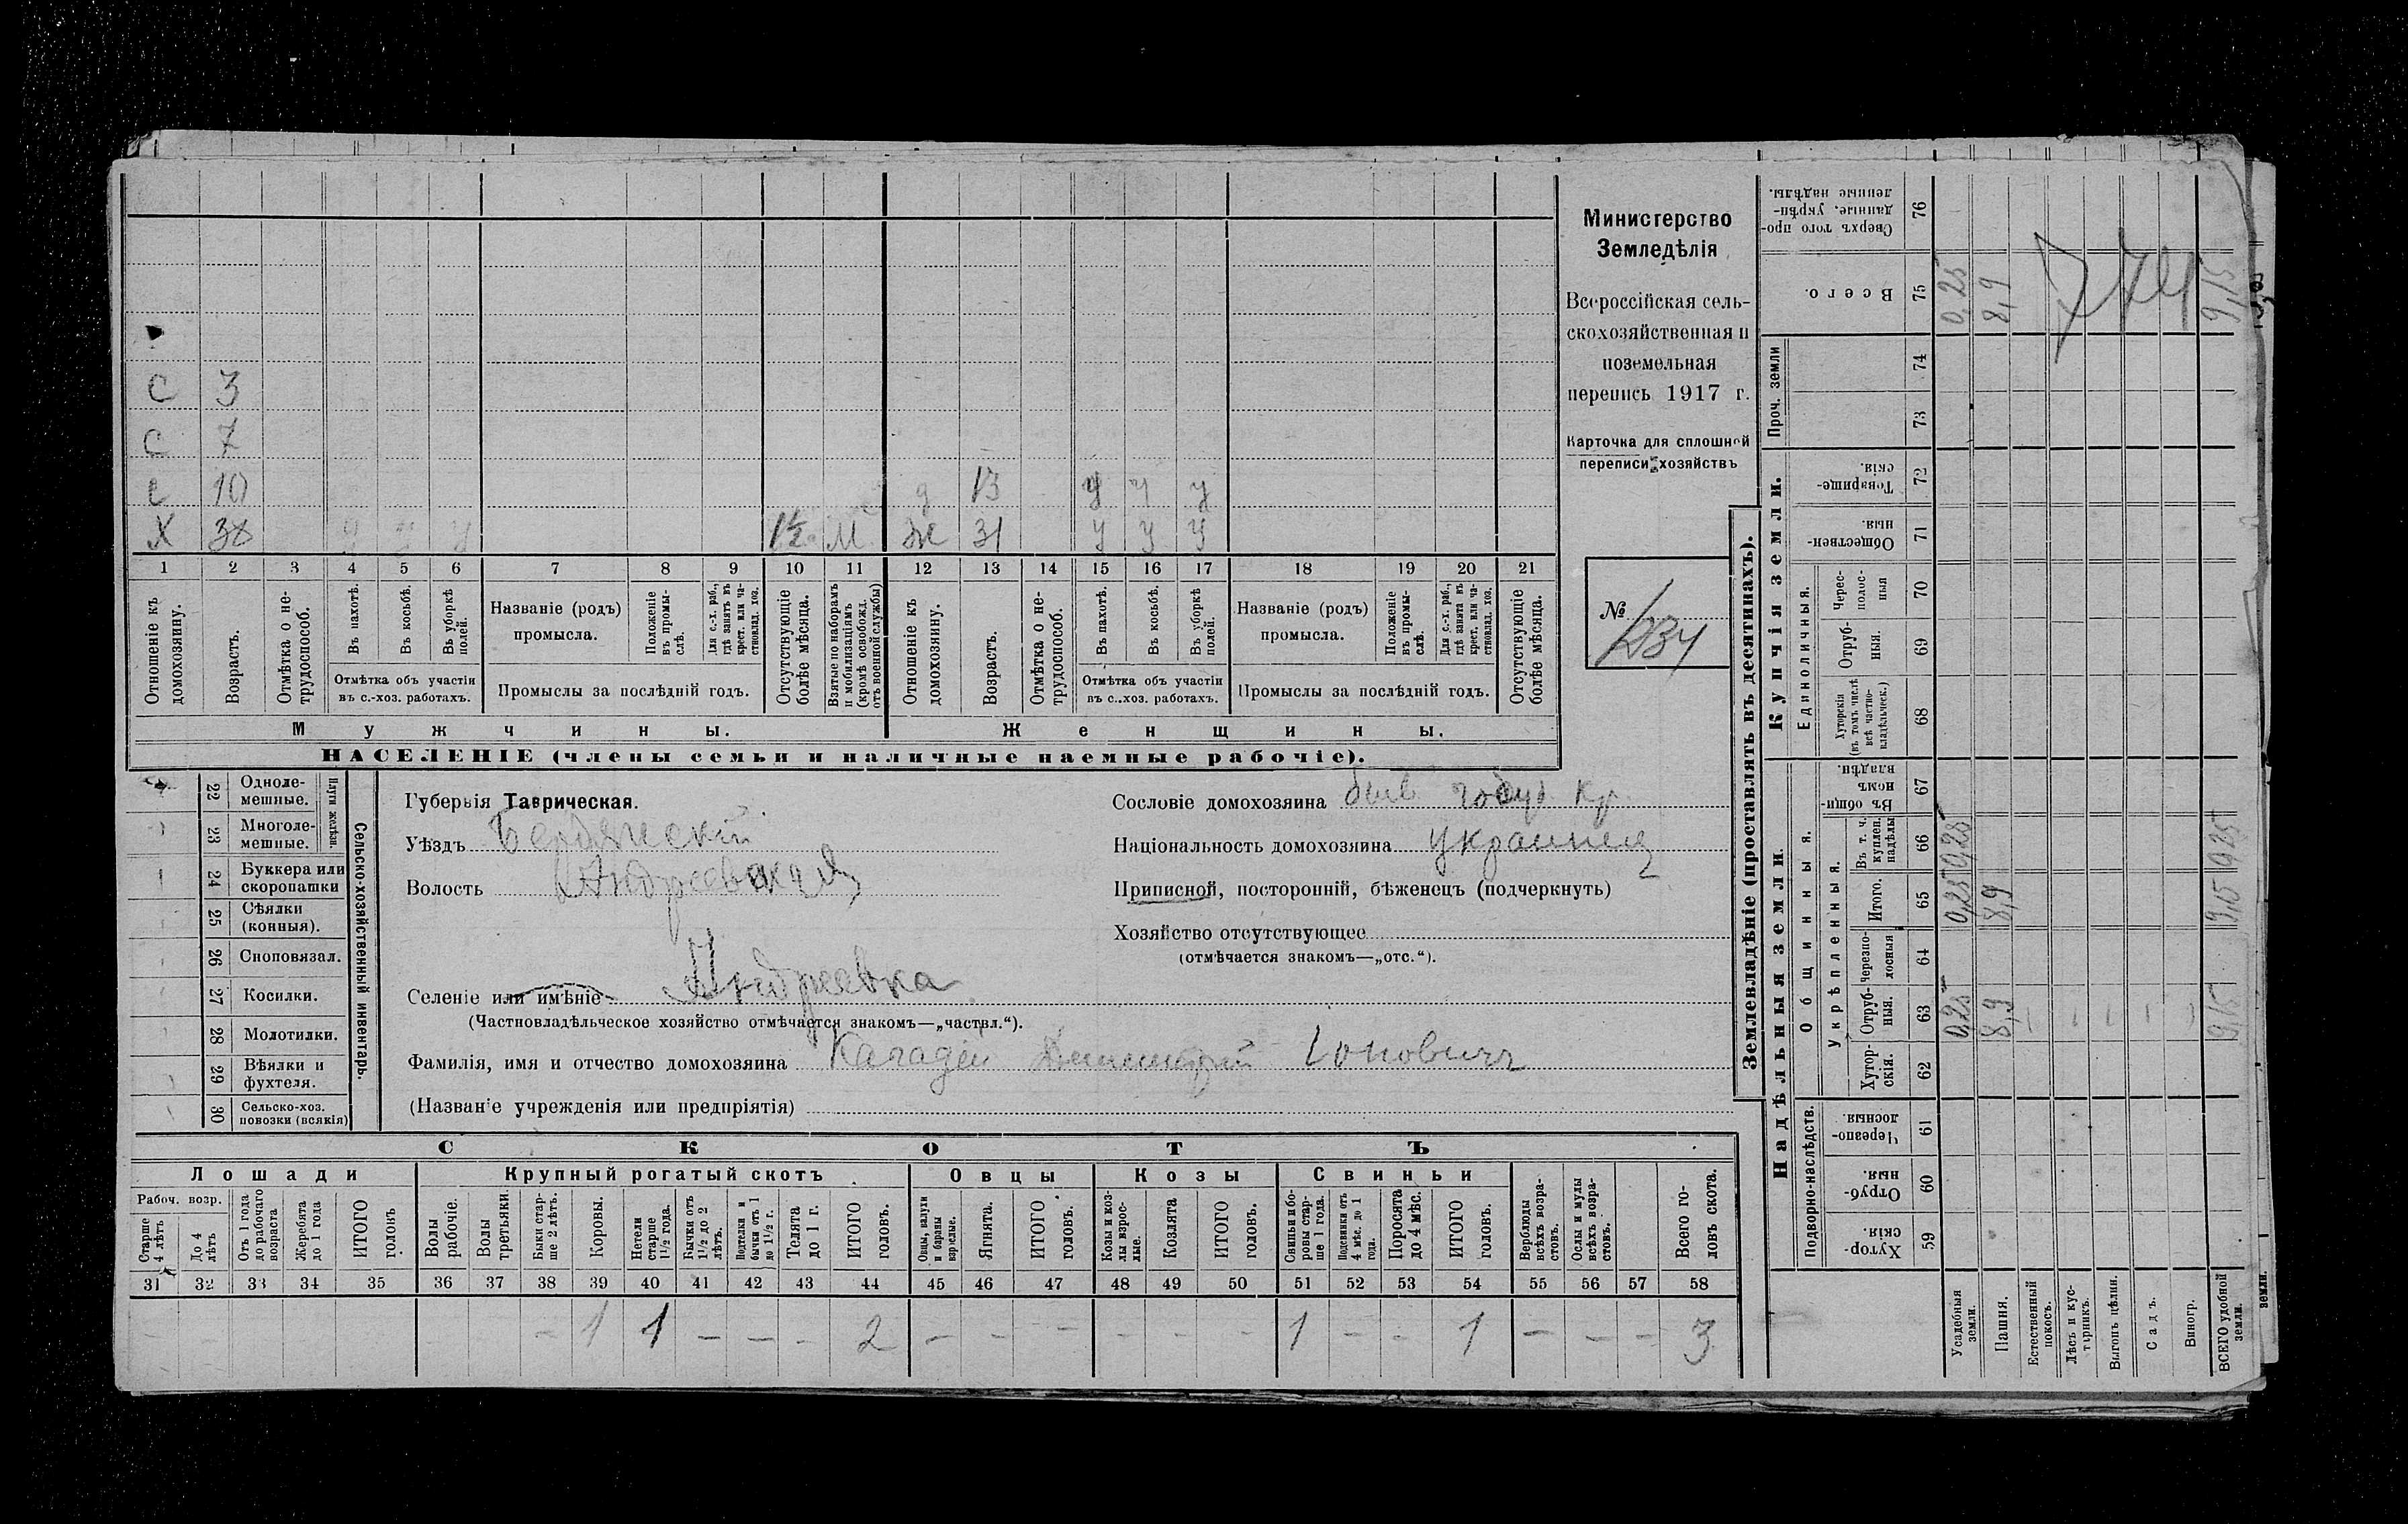 С 3
С 7
С 10 д 13 у у у
Х 38 у у у 1½ М Ж 31 у у у
1 2 3 4 5 6 7 8 9 10 11 12 13 14 15 16 17 18 19 20 21
Отношеніе къ домохозяину.
Возрастъ.
Отмѣтка о не-трудоспособ.
Въ пахотѣ.
Въ косьбѣ.
Въ уборкѣ полей.
Отмѣтка объ участіи
въ с.-хоз. работахъ.
Названіе (родъ)
промысла.
Положеніе въ промы-слѣ.
Для с.-х. раб., гдѣ занятъ въ крест. или ча-стновлад. хоз.
Промыслы за послѣдній годъ.
Отсутствующіе болѣе мѣсяца.
Взятые по наборамъ и мобилизаціямъ (кромѣ освобожд. отъ военной службы)
Отношеніе къ домохозяину.
Возрастъ.
Отмѣтка о не-трудоспособ.
Въ пахотѣ.
Въ косьбѣ.
Въ уборкѣ полей.
Отмѣтка объ участіи
въ с.-хоз. работахъ.
Названіе (родъ)
промысла.
Положеніе въ промы-слѣ.
Для с.-х. раб., гдѣ занята въ крест. или ча-стновлад. хоз.
Промыслы за послѣдній годъ.
Отсутствующіе болѣе мѣсяца.
Мужчины. Женщины.
НАСЕЛЕНІЕ (члены семьи и наличные наемные рабочіе).
Министерство
Земледѣлія
Всероссійская сель-
скохозяйственная и
поземельная
перепись 1917 г.
Карточка для сплошной
переписи хозяйствъ
№
Сельско-хозяйственный инвентарь.
Плуги желѣзн.
22 Одноле-
мешные.
23 Многоле-
мешные.
24 Буккера или
скоропашки
25 Сѣялки
(конныя).
26 Сноповязал.
27 Косилки.
28 Молотилки.
29 Вѣялки и
фухтеля.
30 Сельско-хоз.
повозки (всякія)
Губернія Таврическая.
Уѣздъ Бердянскій
Волость Андреевская
Селеніе или имѣніе Андреевка
(Частновладѣльческое хозяйство отмѣчается знакомъ—„частвл.“).
Фамилія, имя и отчество домохозяина Кагадій Димитрій Іоновичъ
(Названіе учрежденія или предпріятія)
Сословіе домохозяина быв. госуд. кр.
Національность домохозяина украинец
Приписной, посторонній, бѣженецъ (подчеркнуть)
Хозяйство отсутствующее
(отмѣчается знакомъ—„отс.“).
СКОТЪ
Лошади Крупный рогатый скотъ Овцы Козы Свиньи
Рабоч. возр.
Старше 4 лѣтъ
До 4 лѣтъ
Отъ 1 года до рабочаго возраста
Жеребята до 1 года
ИТОГО головъ
Волы рабочіе.
Волы третьяки.
Быки стар-ше 2 лѣтъ.
Коровы.
Нетели старше 1½ года.
Бычки отъ 1½ до 2 лѣтъ.
Подтелки и бычки отъ 1 до 1½ г.
Телята до 1 г.
ИТОГО головъ.
Овцы, валухи и бараны взрослые.
Ягнята.
ИТОГО головъ.
Козы и коз-лы взрос-лые.
Козлята
ИТОГО головъ.
Свиньи и бо-ровы стар-ше 1 года.
Подсвинки отъ 4 мѣс. до 1 года.
Поросята до 4 мѣс.
ИТОГО головъ.
Верблюды всѣхъ возра-стовъ.
Ослы и мулы всѣхъ возра-стовъ.
Всего го-ловъ скота.
31 32 33 34 35 36 37 38 39 40 41 42 43 44 45 46 47 48 49 50 51 52 53 54 55 56 57 58
– 1 1 – – – 2 – – – – – – 1 – – 1 – – – 3
Землевладѣніе (проставлять въ десятинахъ).
Надѣльныя земли. Купчія земли. Проч. земли
Подворно-наслѣдств. Общинныя. Единоличныя.
Укрѣпленныя.
Хутор-скія. 59
Отруб-ныя. 60
Черезпо-лосныя 61
Хутор-скія. 62
Отруб-ныя. 63
Черезпо-лосныя 64
Итого. 65
Въ т. ч. куплен. надѣлы 66
Въ общин-номъ владѣн. 67
Хуторскія (въ томъ числѣ всѣ частно-владѣльческ.) 68
Отруб-ныя. 69
Черес-полос-ныя 70
Обществен-ныя. 71
Товарище-скія. 72
73
74
Всего. 75
Сверхъ того про-данные, укрѣп-ленные надѣлы. 76
Усадебныя земли. 0,25 0,25 0,25 0,25
Пашня. 8,9 8,9 8,9
Естественный покосъ.
Лѣсъ и кус-тарникъ.
Выгонъ цѣлин.
Садъ.
Виногр.
ВСЕГО удобной земли. 9,15 9,15 0,25 9,15
774
земли.